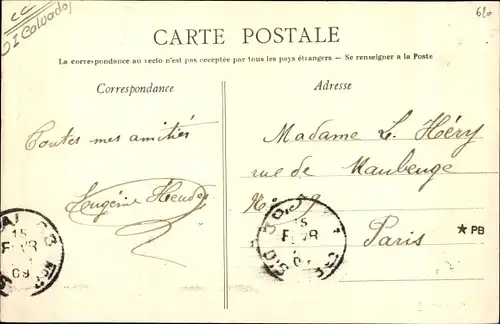 CC
Calvados
610
CARTE POSTALE
La correspondance au recto n'est pas acceptée par tous les pays étrangers — Se renseigner a la Poste
Correspondance
Adresse
Toutes mes amitiés
Eugénie
Madame L. Héry
rue de Maubeuge
Paris
* PB
15
FEVR
09
15
FEVR